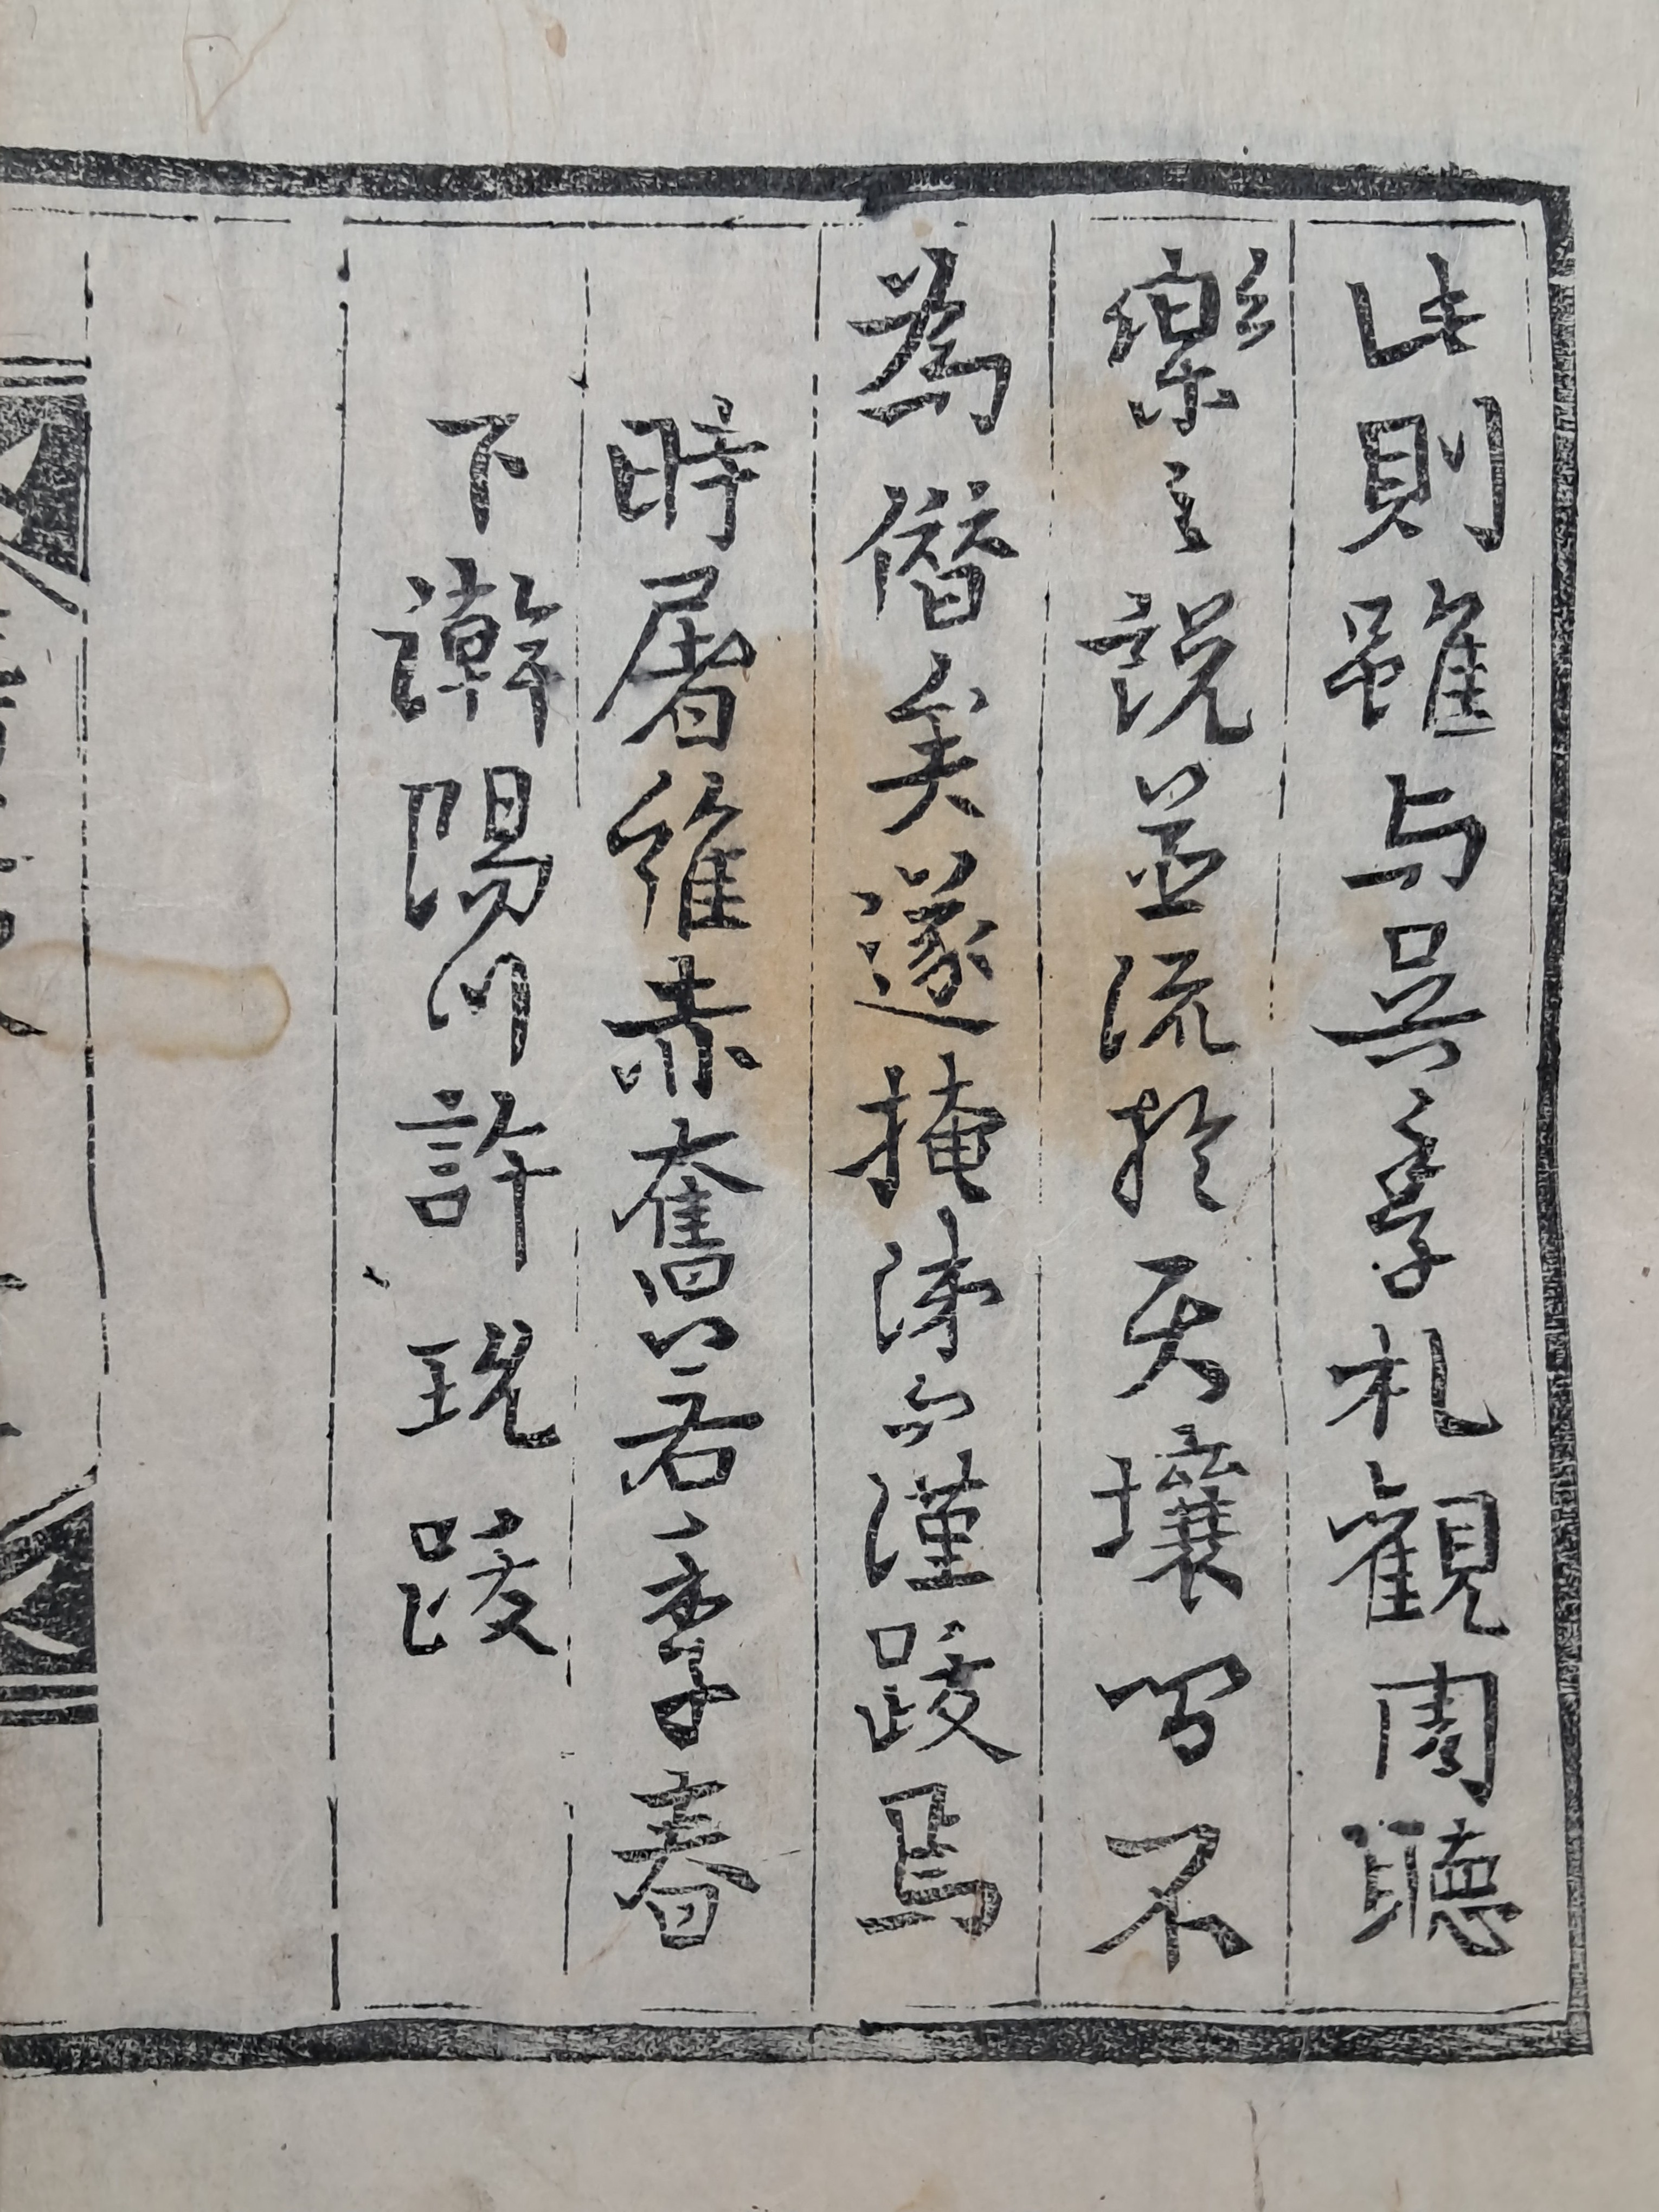 此則雖与吳季札觀周聽
樂之說並流於天壤間不
為僭矣遂掩涕而謹跋焉
時屠維赤奮若季春
下澣陽川許跋